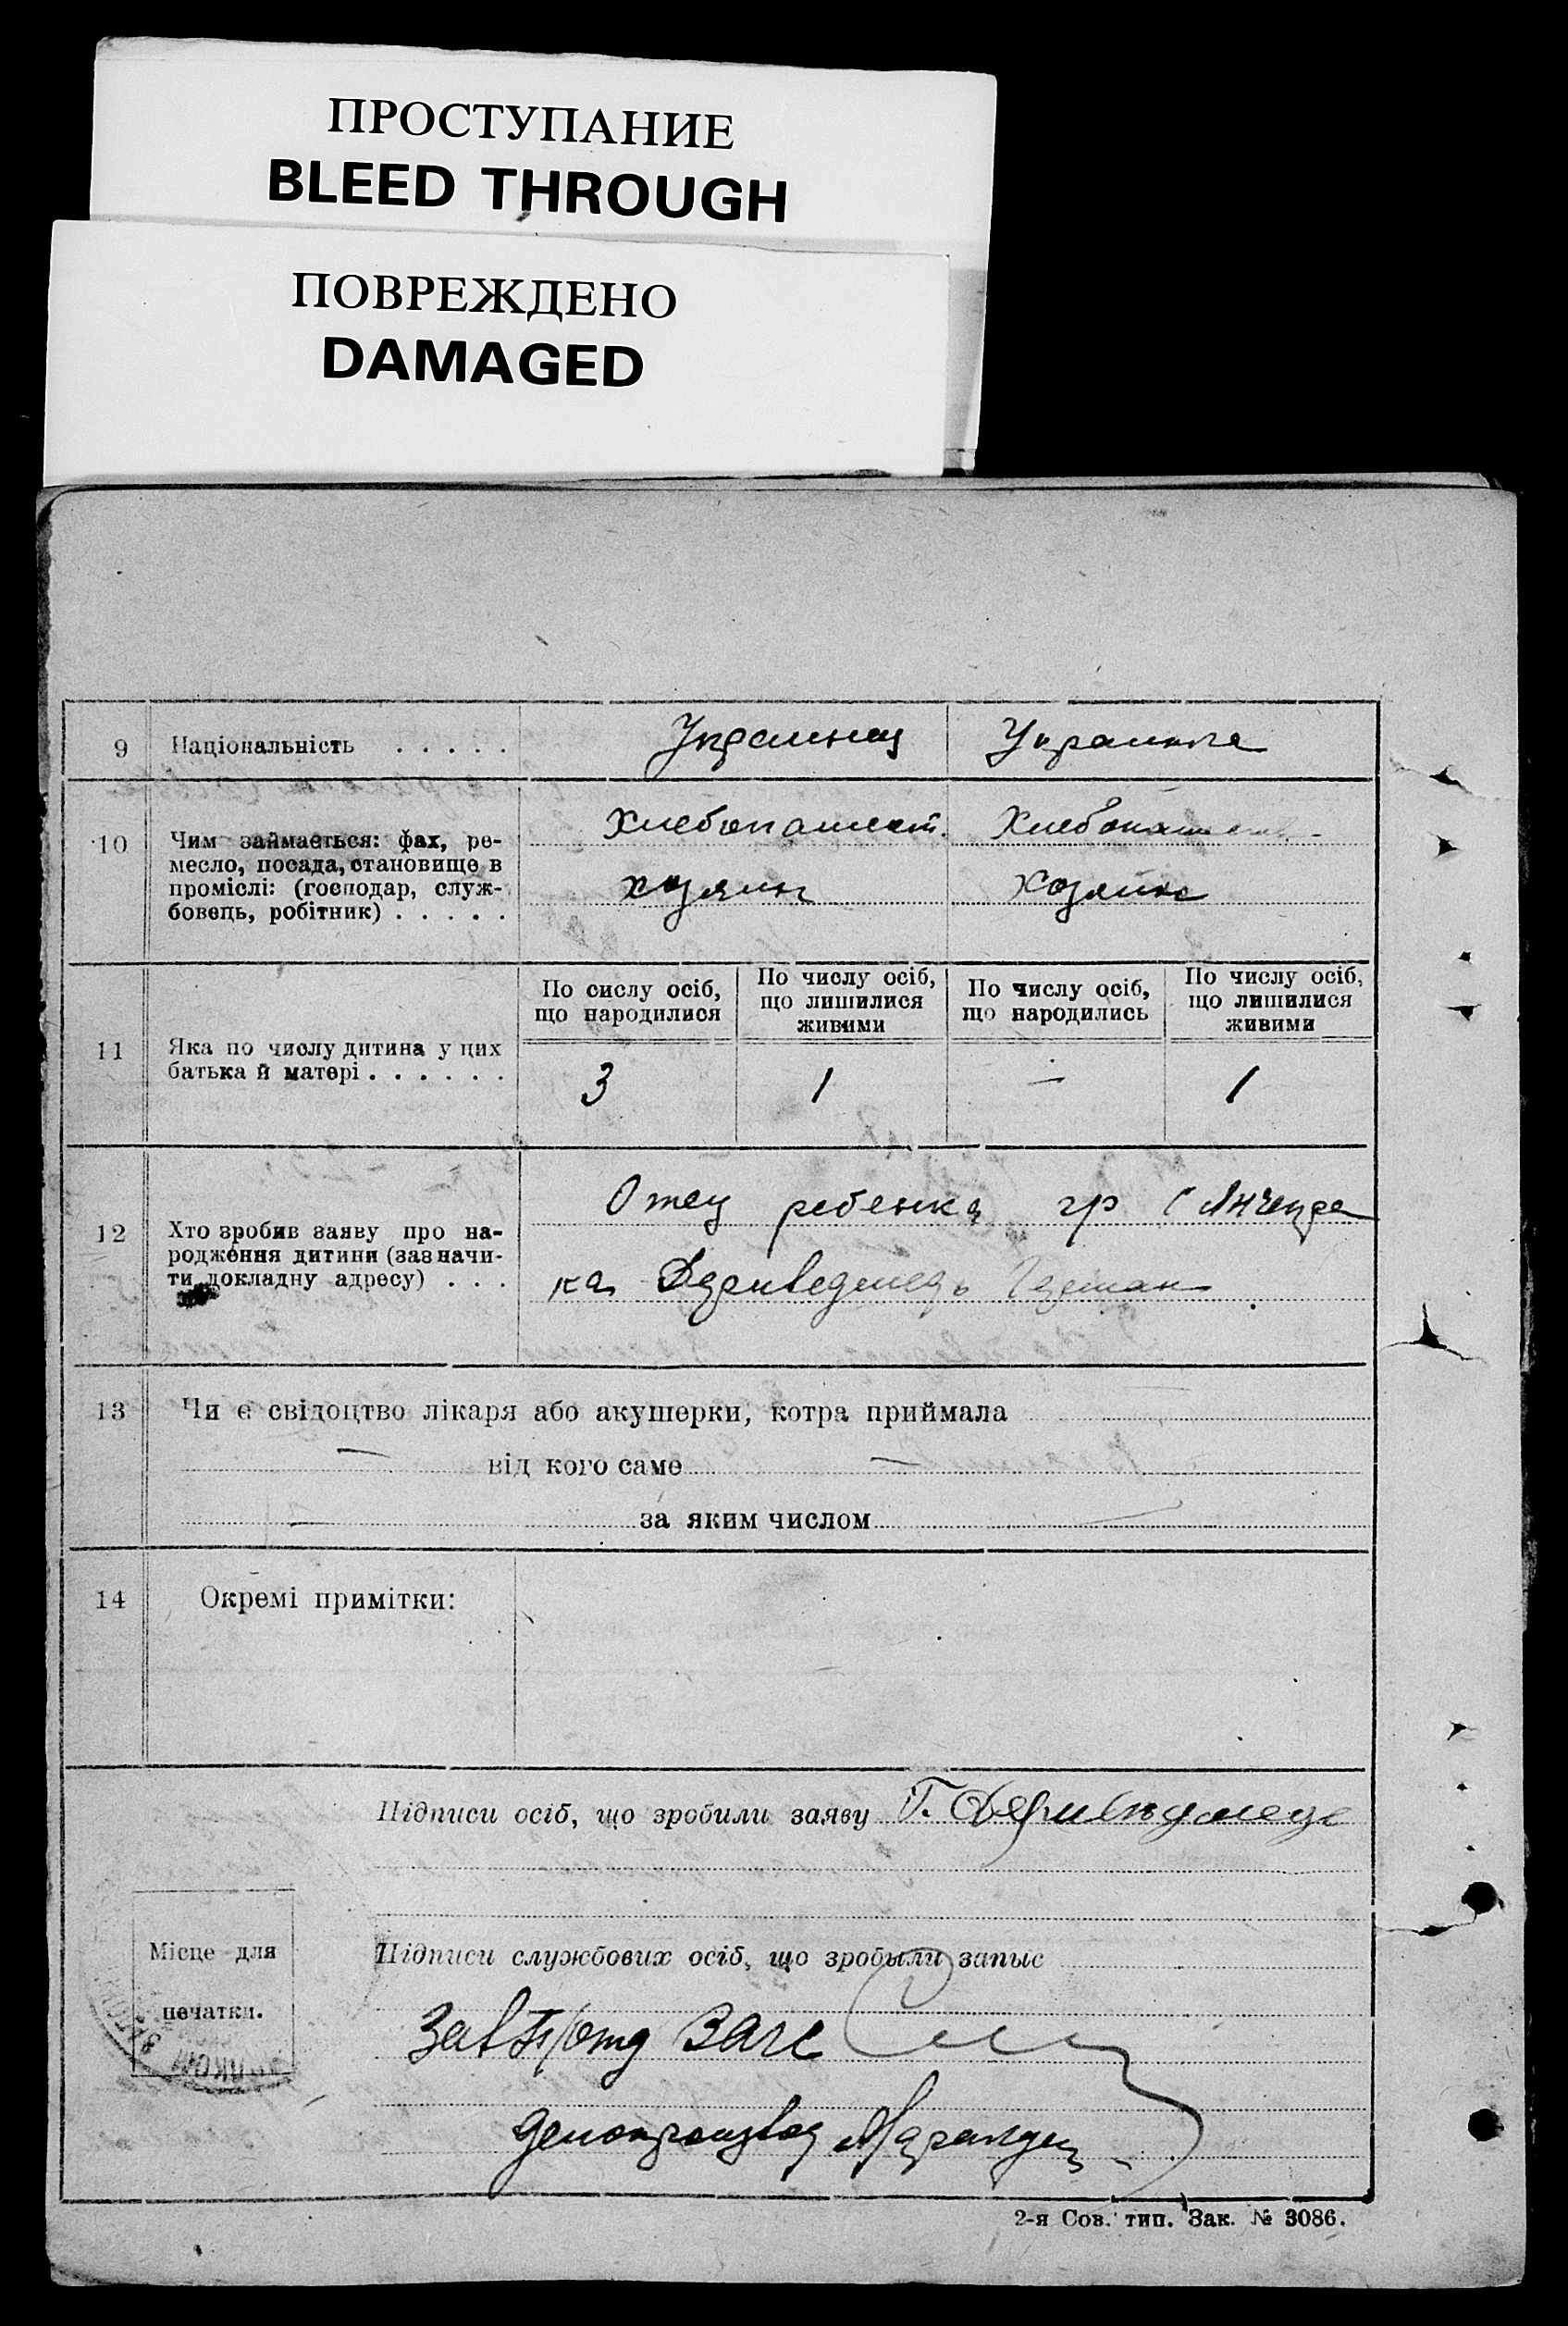 ПРОСТУПАНИЕ
BLEED THROUGH
ПОВРЕЖДЕНО
DAMAGED
9 Національність . . . . . Украинец Украинка
10 Чим займається: фах, ре-
месло, посада, становище в
проміслі: (господар, служ-
бовець, робітник) . . . . .
Хлебопашест. Хлебопашеств.
хозяин хозяйка
По сислу осіб,
що народилися
По числу осіб,
що лишилися
живими
По числу осіб,
що народились
По числу осіб,
що лишилися
живими
11 Яка по числу дитина у цих
батька й матері . . . . . .
3 1 — 1
12 Хто зробив заяву про на-
родження дитини (зазначи-
ти докладну адресу) . . .
Отец ребенка гр с Анчекра
ка
13 Чи є свідоцтво лікаря або акушерки, котра приймала
— від кого саме —
— за яким числом —
14 Окремі примітки:
Підписи осіб, що зробили заяву Г.
Місце для
печатки.
Підписи службових осіб, що зробыли запыс
Зав ЗАГС
делопроизвод
2-я Сов. тип. Зак. № 3086.